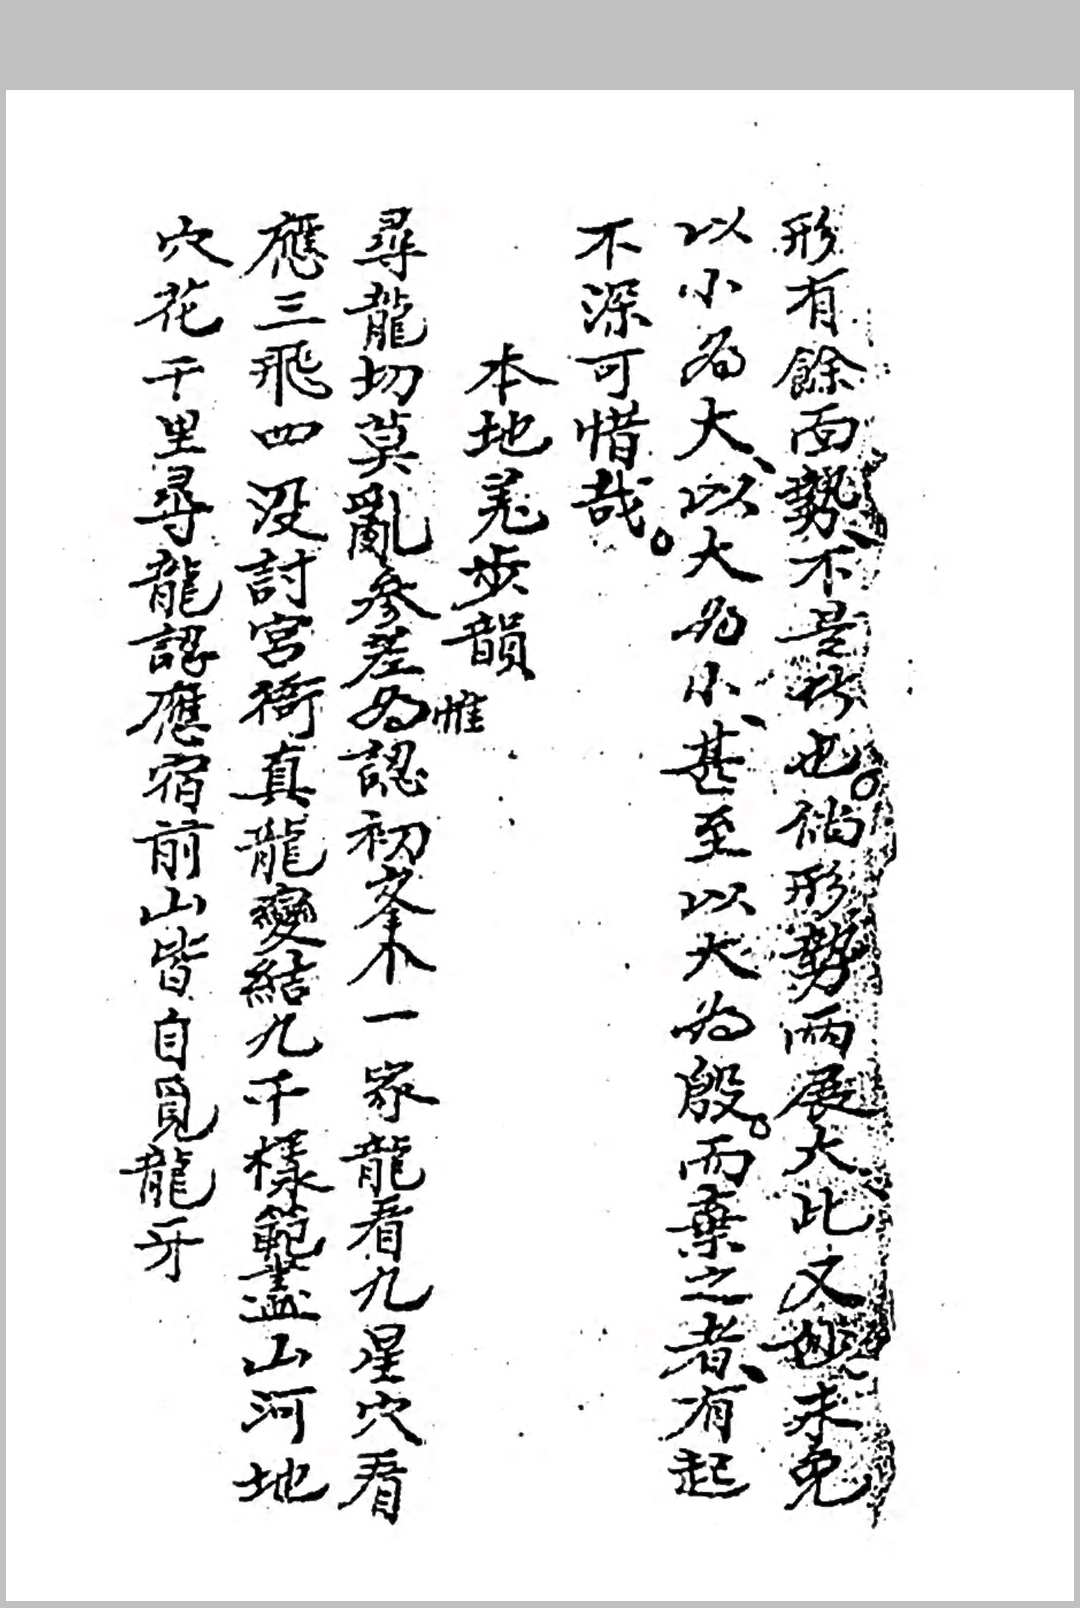 形有餘面勢、不是坎也。倘形勢兩展大、此又妙、未免
以小為大、以大為小、甚至以大為殷。而棄之者、有起
不深可惜哉。
本地羗步韻
尋龍切莫亂參差為認初峯不一家龍看九星穴看
惟
應三飛四沒討宮衙真龍變結九千樣範盡山河地
穴花千里尋龍認應宿前山皆自覓龍牙